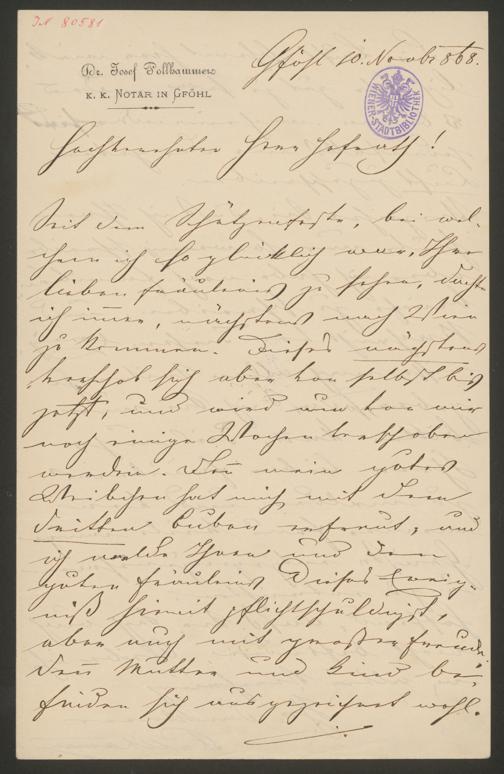 IN 80581
Dr. Josef Pollhammer
K. K. NOTAR IN GFÖHL
WIENER STADTBIBLIOTHEK
Gföhl 10. Novbr 868.
Hochverehrter Herr Hofrath!
Seit dem Schützenfeste, bei wel-
chem ich so glücklich war, Ihre
lieben Fräuleins zu sehen, dachte
ich immer, nächstens nach Wien
zu kommen. Dieses nächstens
verschob sich aber von selbst bis
jetzt, und wird nun von mir
noch einige Wochen verschoben
werden. Denn mein gutes
Weibchen hat mich mit dem
dritten Buben erfreut, und
ich melde Ihnen und den
guten Fräuleins dieses Ereig-
niß hiemit pflichtschuldigst,
aber auch mit großer Freude,
denn Mutter und Kind be-
finden sich ausgezeichnet wohl.